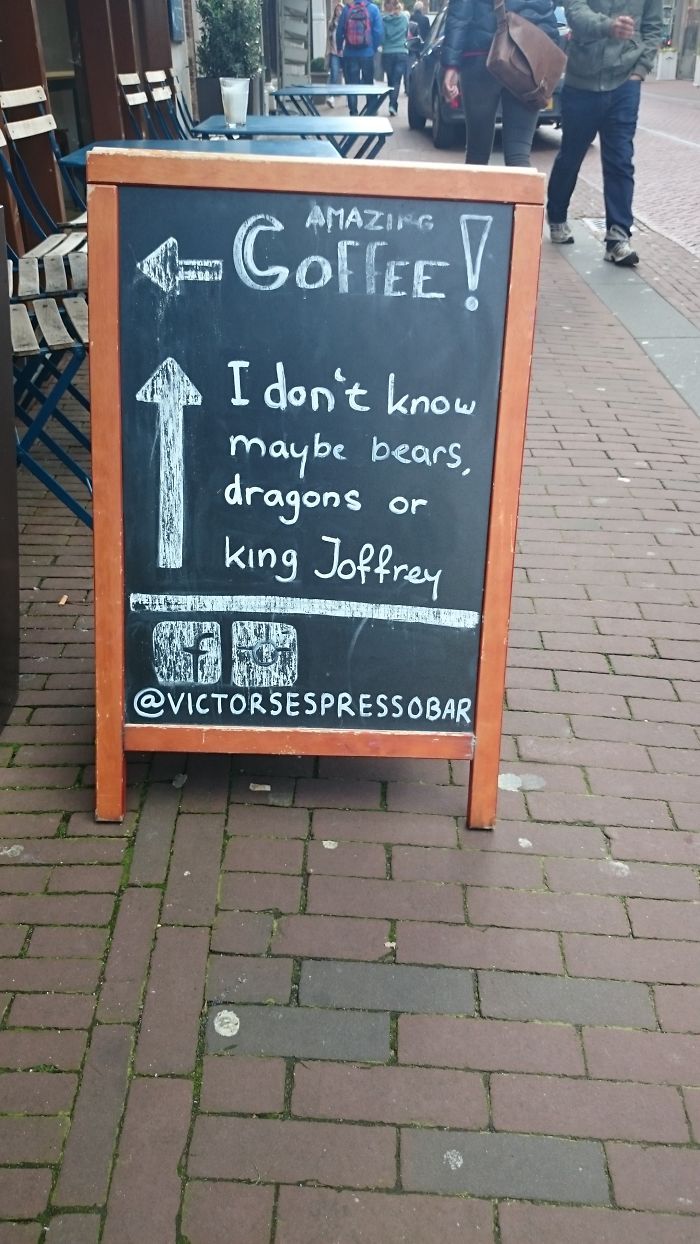 AMAZING
COFFEE!
I don't know
maybe bears,
dragons or
king Joffrey
f
@VICTORSESPRESSOBAR